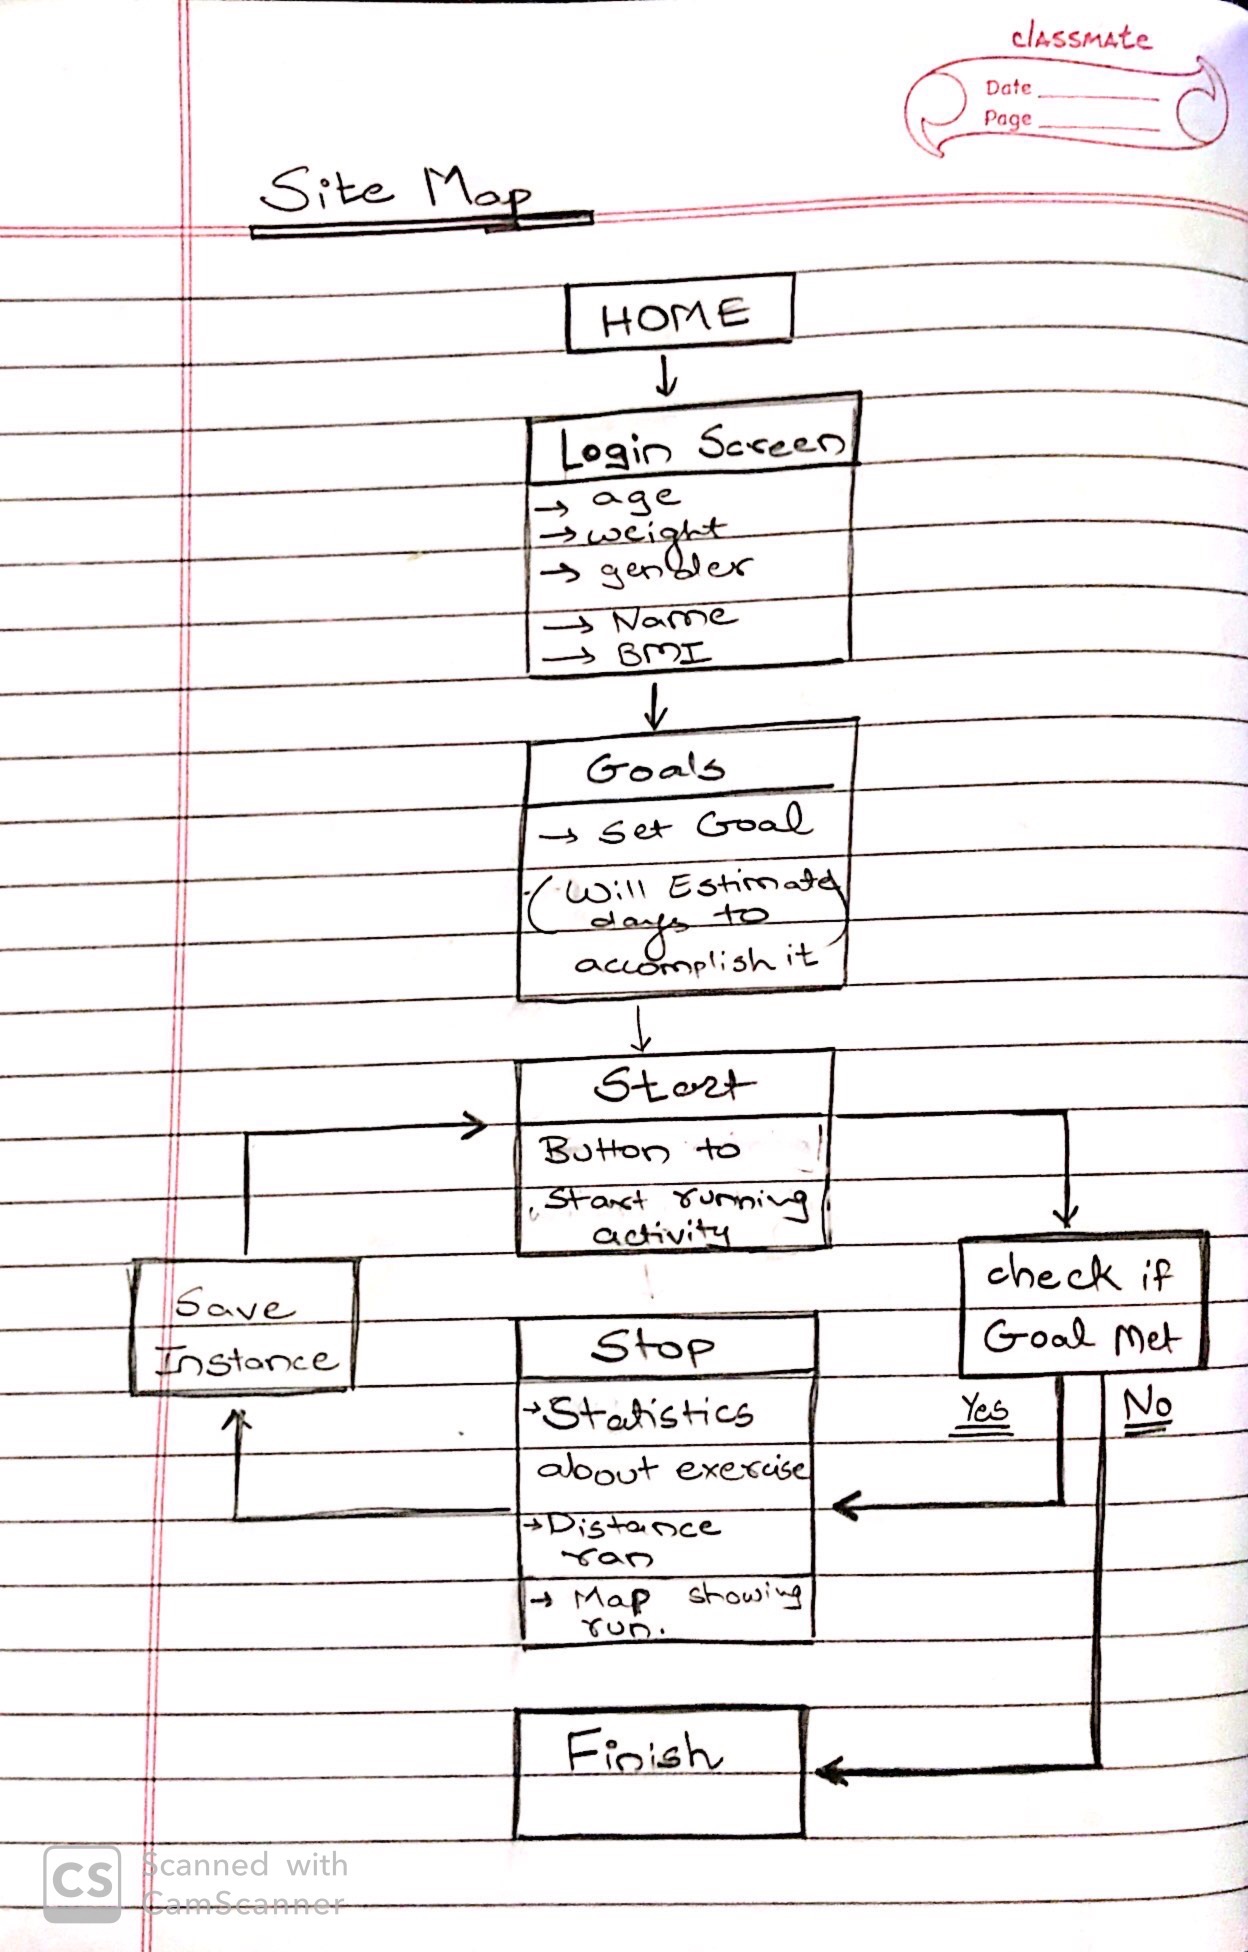 classmate
Date
Page
Site Map
HOME
Login Screen
→ age
→ weight
→ gender
→ Name
→ BMI
Goals
→ Set Goal
(Will Estimate
days to)
accomplish it
Start
Button to
Start running
activity
check if
Goal Met
Save
Instance
Stop
→ Statistics
about exercise
→ Distance
ran
→ Map showing
run.
Yes
No
Finish
CS
Scanned with
CamScanner